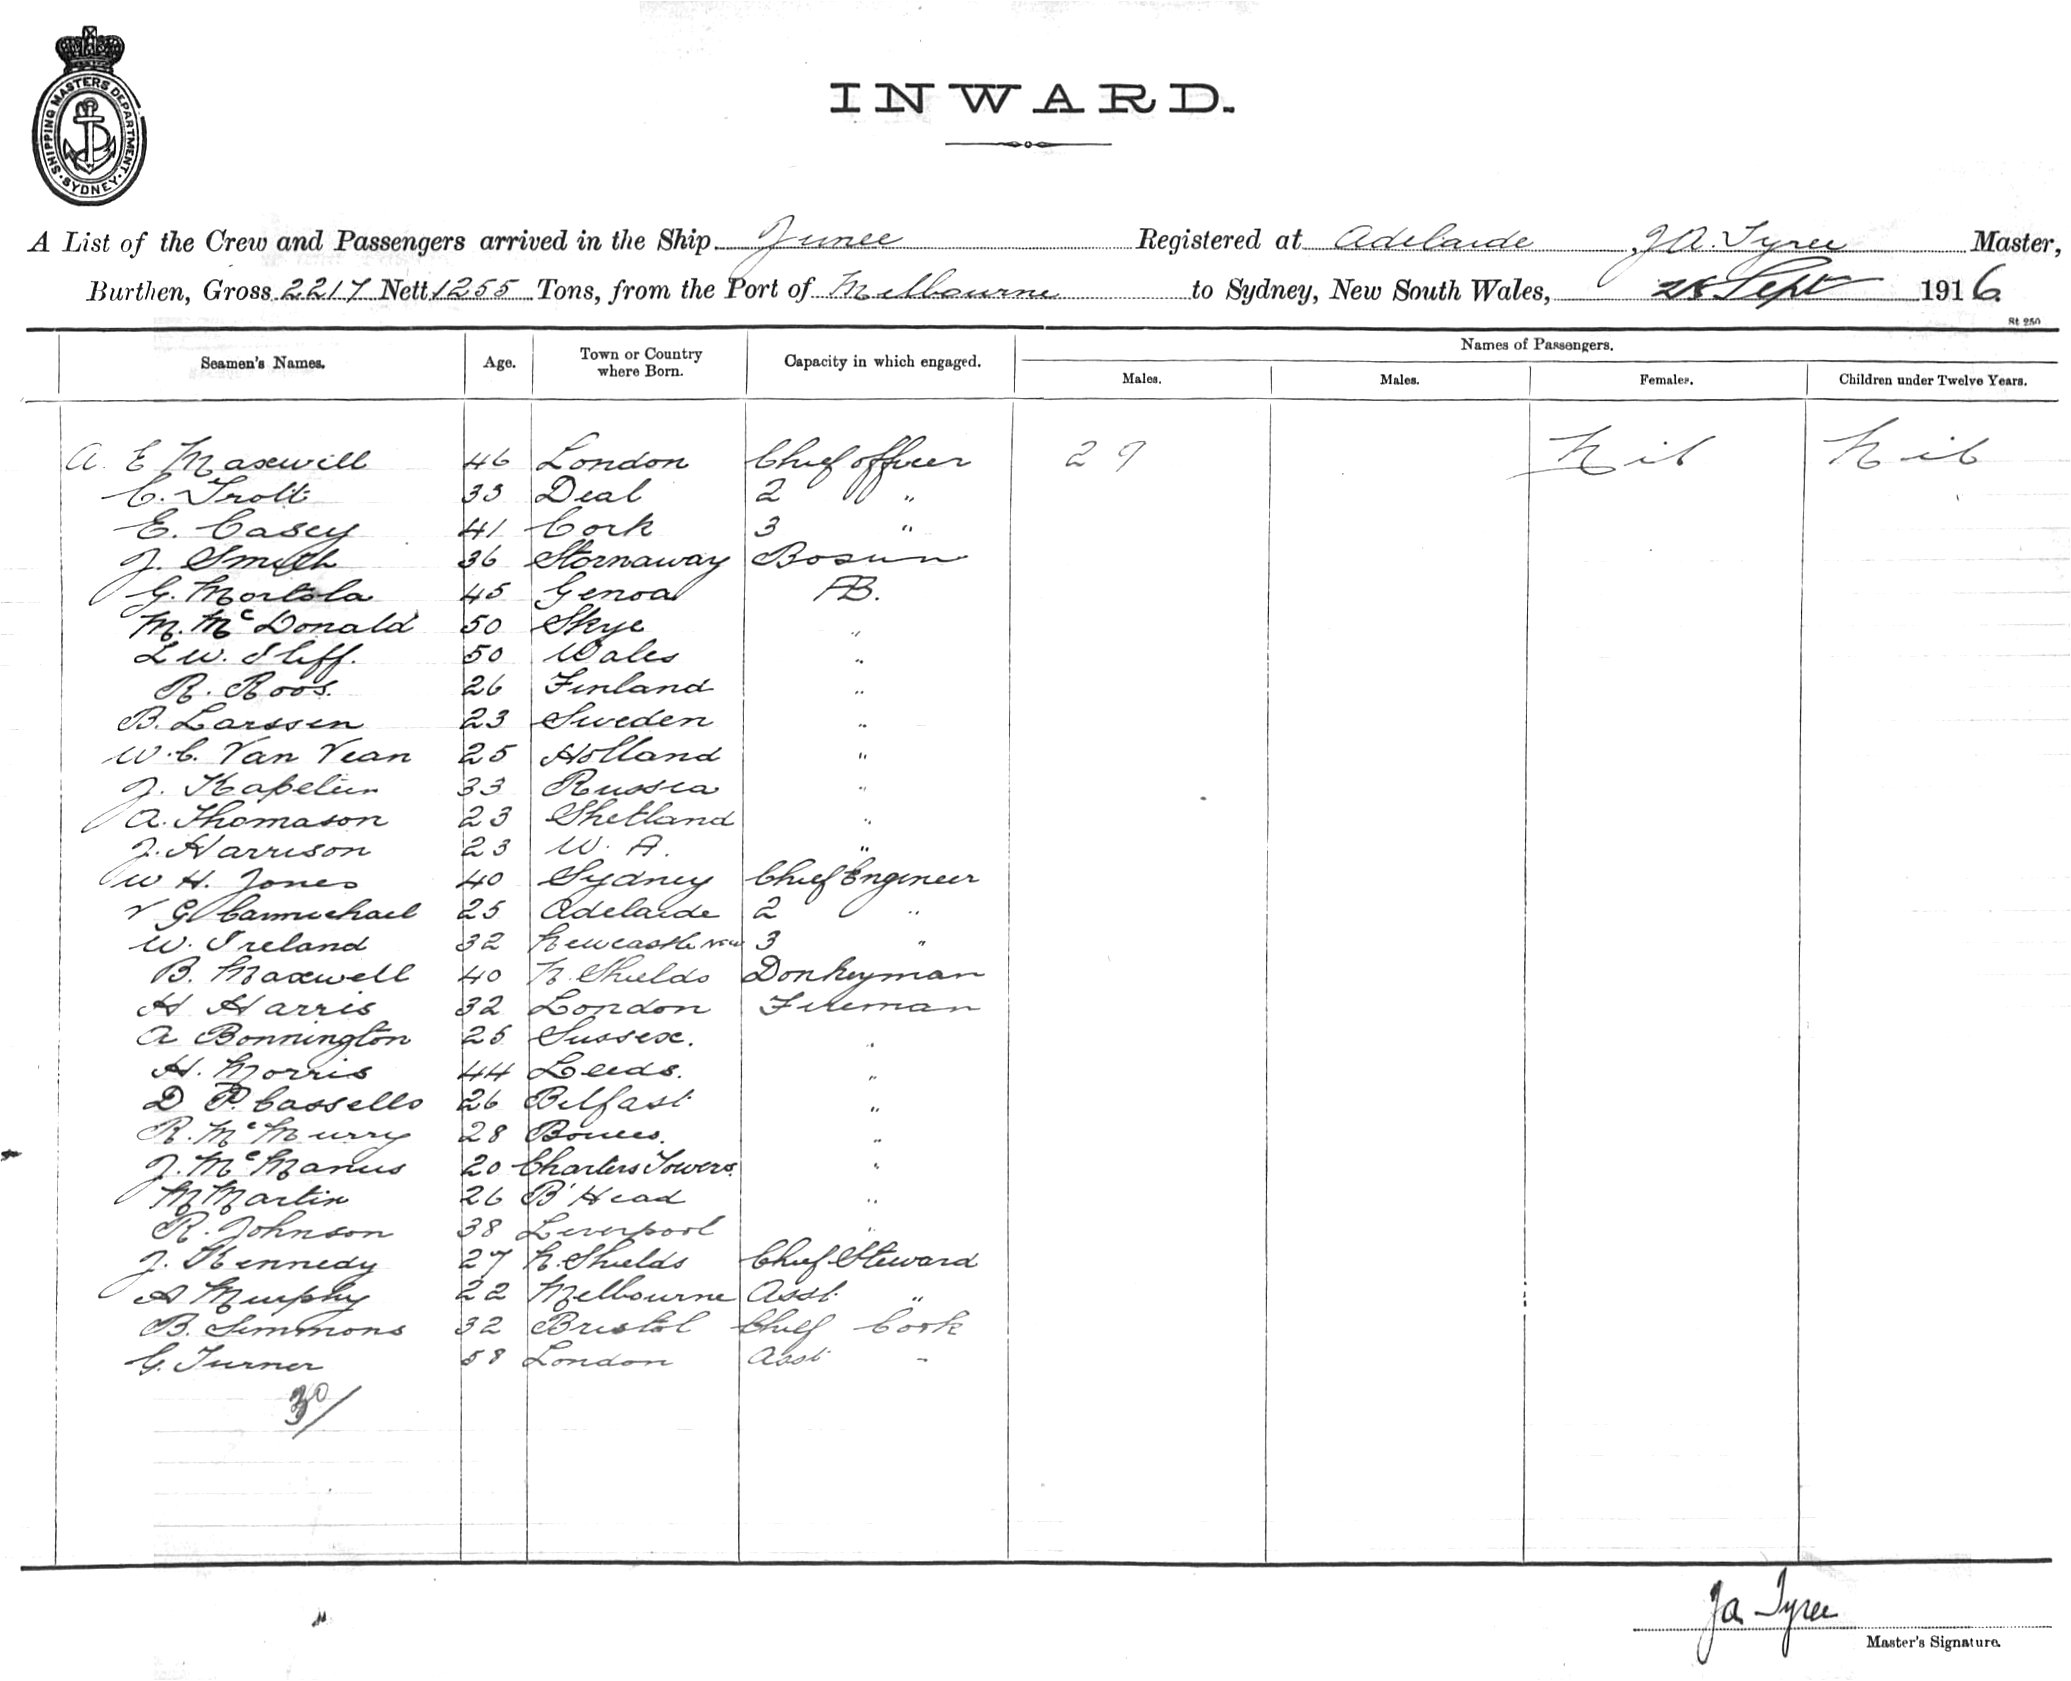 SHIPPING MASTERS DEPARTMENT. SYDNEY
INWARD.
A List of the Crew and Passengers arrived in the Ship Junee Registered at Adelaide, J A. Tyree Master,
Burthen, Gross 2217 Nett 1255 Tons, from the Port of Melbourne to Sydney, New South Wales, 28 Sept 1916
St 250
Seamen's Names. Age. Town or Country where Born. Capacity in which engaged. Names of Passengers.
Males. Males. Females. Children under Twelve Years.
A. E Maxwell 46 London Chief officer 29 Nil Nil
C. Trott 35 Deal 2 "
E. Casey 41 Cork 3 "
J. Smith 36 Stornaway Bosun
G. Mortola 45 Genoa AB.
M. McDonald 50 Skye "
L W. Iliff. 50 Wales "
R. Roos. 26 Finland "
B. Larssen 23 Sweden "
W. C. Van Vean 25 Holland "
J. Kapelin 33 Russia "
A. Thomason 23 Shetland "
J. Harrison 23 W. A. "
W H. Jones 40 Sydney Chief Engineer
V G Carmichael 25 Adelaide 2 "
W. Ireland 32 Newcastle NSW 3 "
B. Maxwell 40 N. Shields Donkeyman
H Harris 32 London Fireman
A Bonnington 25 Sussex. "
H. Morris 44 Leeds. "
D P. Cassells 26 Belfast "
R. McMurry 28 "
J. McManus 20 Charters Towers. "
M Martin 26 B'Head "
R. Johnson 38 Liverpool "
J. Kennedy 27 N. Shields Chief Steward
A Murphy 22 Melbourne Asst. "
B. Simmons 32 Bristol Chief Cook
G. Turner 58 London Asst "
30/
J A Tyree
Master's Signature.